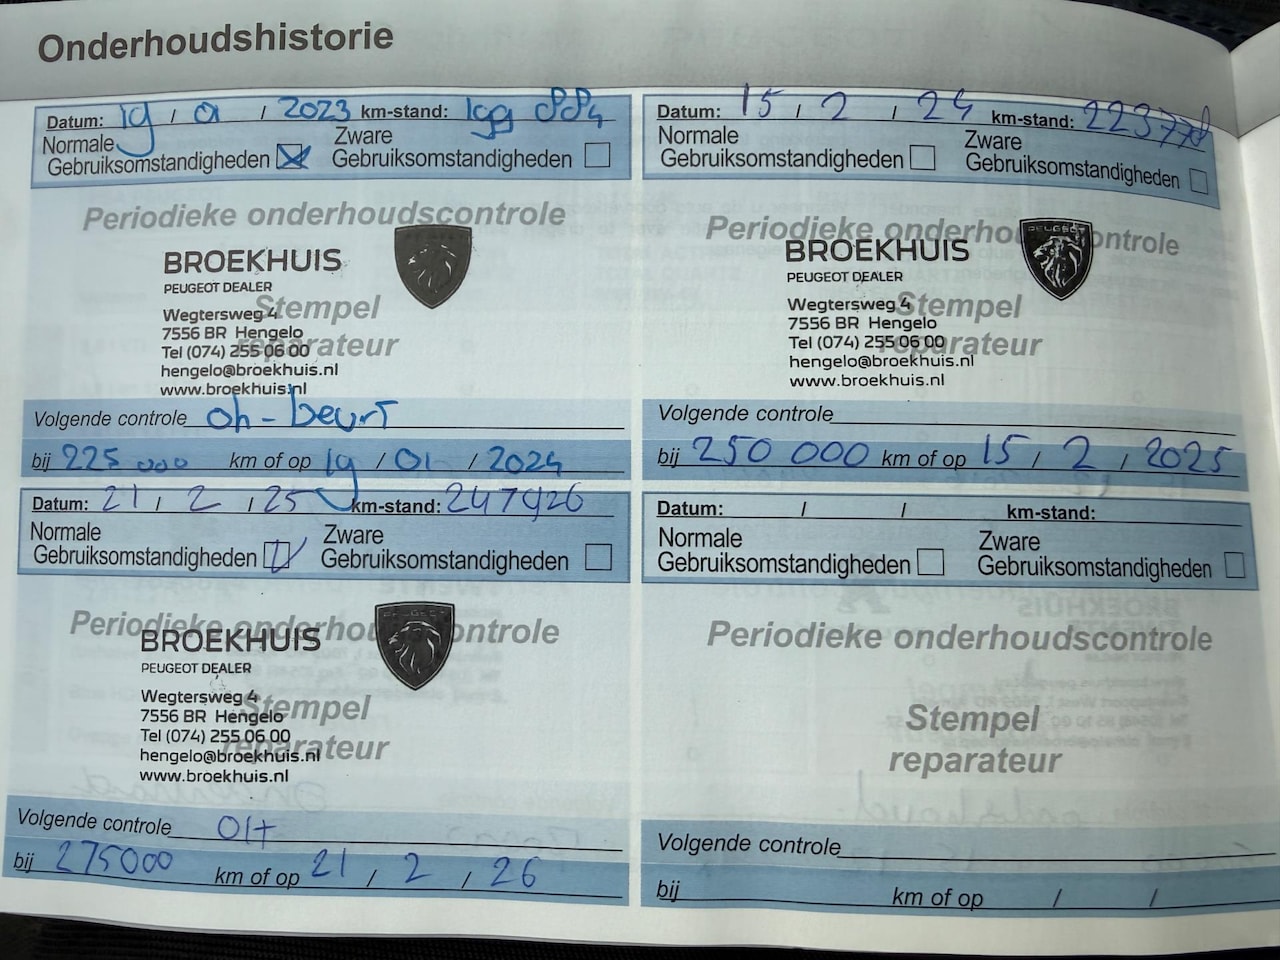 Onderhoudshistorie
Datum: 19 / 01 / 2023 km-stand: 199 884
Normale Gebruiksomstandigheden
Zware Gebruiksomstandigheden
Periodieke onderhoudscontrole
BROEKHUIS
PEUGEOT DEALER
Stempel reparateur
Wegtersweg 4
7556 BR Hengelo
Tel (074) 255 06 00
hengelo@broekhuis.nl
www.broekhuis.nl
Volgende controle oh-beurt
bij 225 000 km of op 19 / 01 / 2024
Datum: 15 / 2 / 24 km-stand:
Normale Gebruiksomstandigheden
Zware Gebruiksomstandigheden
Periodieke onderhoudscontrole
PEUGEOT
BROEKHUIS
PEUGEOT DEALER
Stempel reparateur
Wegtersweg 4
7556 BR Hengelo
Tel (074) 255 06 00
hengelo@broekhuis.nl
www.broekhuis.nl
Volgende controle
bij 250 000 km of op 15 / 2 / 2025
Datum: 21 / 2 / 25 km-stand: 247926
Normale Gebruiksomstandigheden
Zware Gebruiksomstandigheden
Periodieke onderhoudscontrole
PEUGEOT
BROEKHUIS
PEUGEOT DEALER
Stempel reparateur
Wegtersweg 4
7556 BR Hengelo
Tel (074) 255 06 00
hengelo@broekhuis.nl
www.broekhuis.nl
Volgende controle OH
bij 275000 km of op 21 / 2 / 26
Datum: / / km-stand:
Normale Gebruiksomstandigheden
Zware Gebruiksomstandigheden
Periodieke onderhoudscontrole
Stempel
reparateur
Volgende controle
bij km of op / /